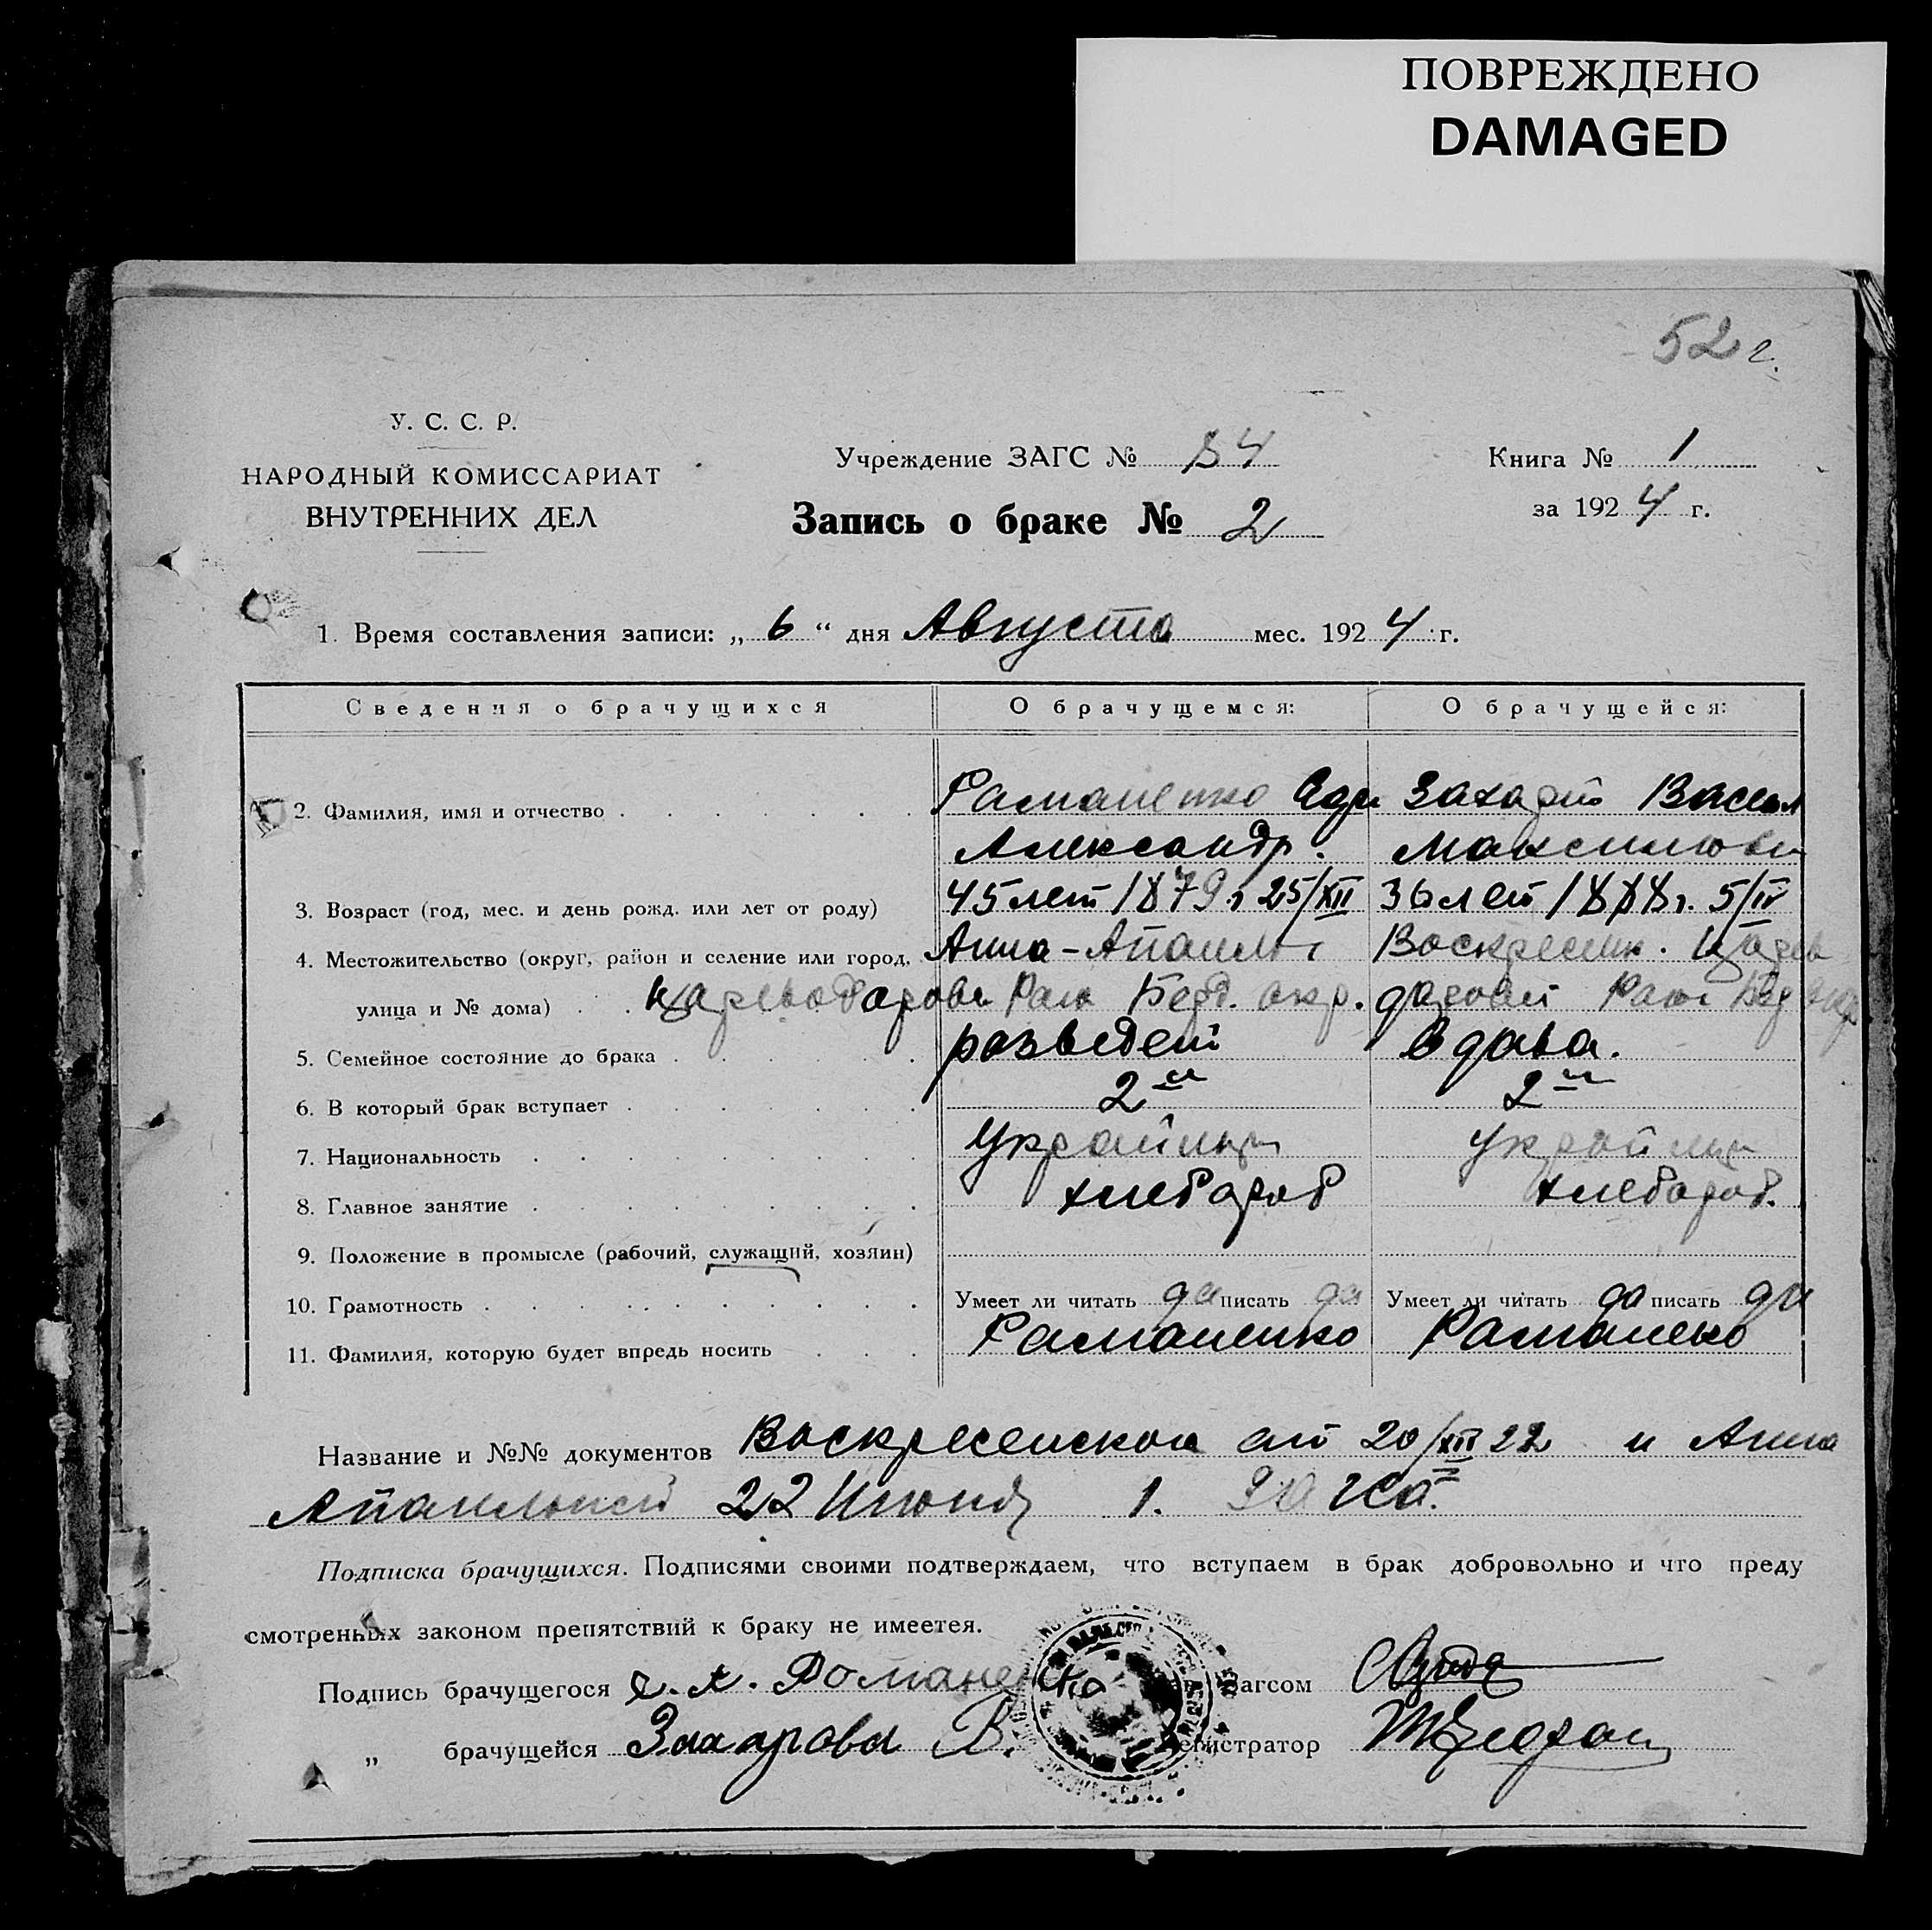 ПОВРЕЖДЕНО
DAMAGED
52 г.
У. С. С. Р.
НАРОДНЫЙ КОМИССАРИАТ
ВНУТРЕННИХ ДЕЛ
Учреждение ЗАГС № 34
Книга № 1
Запись о браке № 2
за 1924 г.
1. Время составления записи: „ 6 “ дня Августа мес. 1924 г.
Сведения о брачущихся О брачущемся: О брачущейся:
2. Фамилия, имя и отчество Раманенко Васил
Александр. Максимовн
3. Возраст (год, мес. и день рожд. или лет от роду) 45 лет 1879 г 25/XII 36 лет 1888 г. 5/IV
4. Местожительство (округ, район и селение или город, Анна- Воскресенк.
улица и № дома) Раио Берд. окр. Раио
5. Семейное состояние до брака разведен Вдава.
6. В который брак вступает 2й 2й
7. Национальность Украинец Украинец
8. Главное занятие хлебароб хлебароб.
9. Положение в промысле (рабочий, служащий, хозяин)
10. Грамотность Умеет ли читать да писать да Умеет ли читать да писать да
11. Фамилия, которую будет впредь носить Раманенко Раманенко
Название и №№ документов Воскресенскои ат 20/XII 22 и Анна
22 Июня 1. Загса.
Подписка брачущихся. Подписями своими подтверждаем, что вступаем в брак добровольно и что преду
смотренных законом препятствий к браку не имеетея.
Подпись брачущегося Романенко агсом
„ брачущейся Захарова В. егистратор